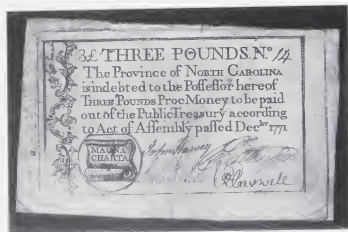 3£ THREE POUNDS. No. 14
The Province of NORTH CAROLINA
is indebted to the Poſſeſſor hereof
THREE POUNDS Proc Money to be paid
out of the Public Treaſury according
to Act of Aſſembly paſſed Decbr 1771
MAGNA
CHARTA
John Harvey